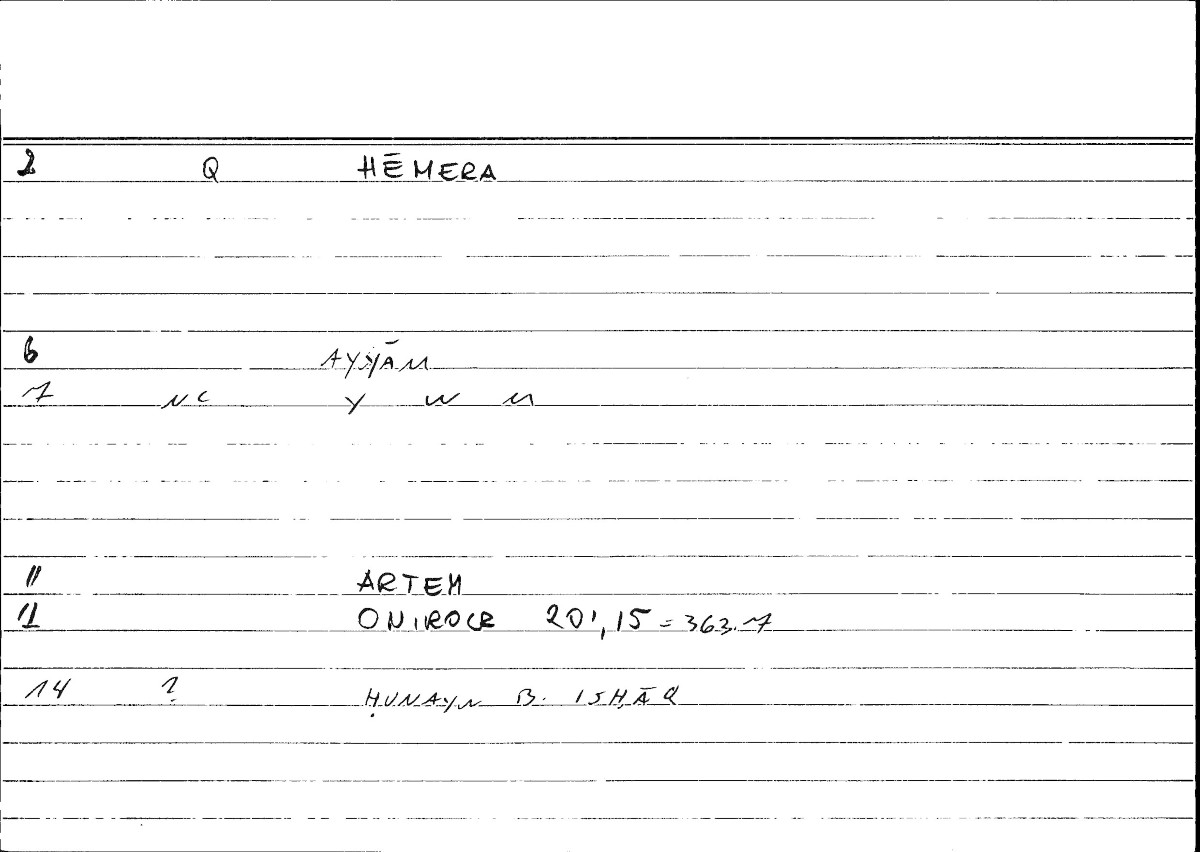 2 Q HĒMERA
6 AYYĀM
7 NC Y W M
11 ARTEM
12 ONIROCR 201,15 = 363.7
14 ? ḤUNAYN B. ISḤĀQ